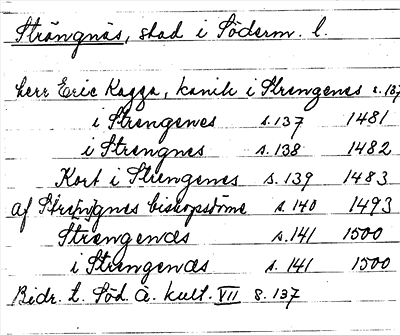 Strängnäs, stad i Söderm. l.
herr Eric Kagga, kanik i Strengenes s.137
i Strengenes s.137 1481
i Strengnes s.138 1482
Kort i Strengenes s.139 1483
af Stre[n]gnes biskopsdöme s.140 1493
Strengenæs s.141 1500
i Strengenæs s.141 1500
Bidr. t. Söd. ä. kult. VII s.137